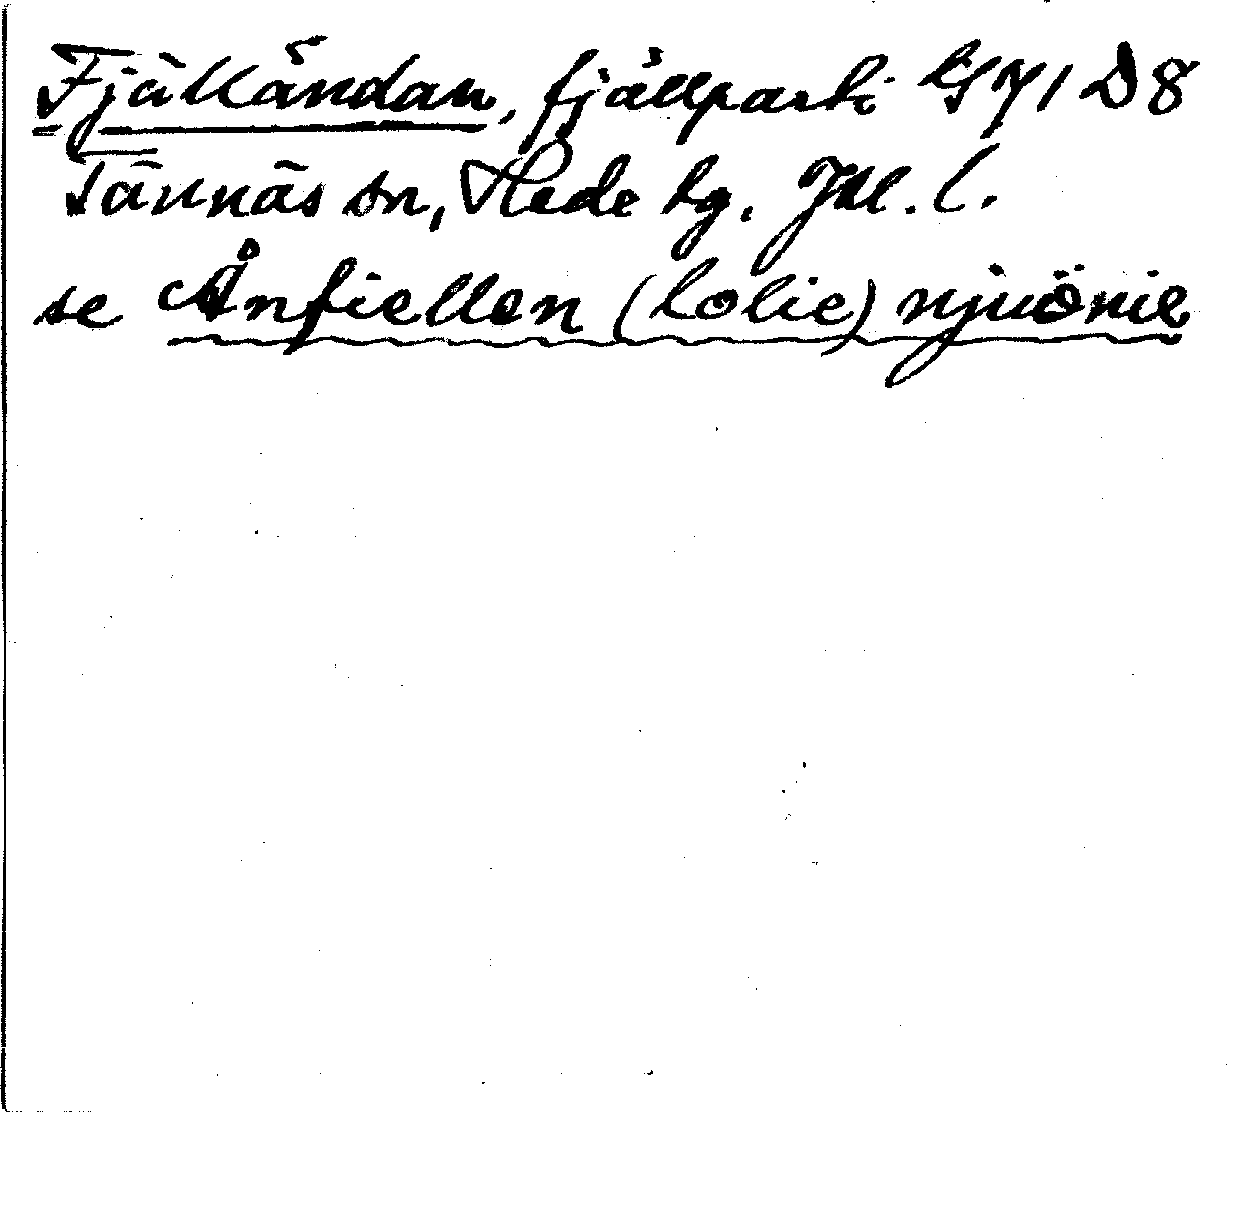 Fjälländan, fjällparti GY1 D8
Tännäs sn, Hede tg. Jtl. l.
se Ånfiellen (Lolie) njuönie